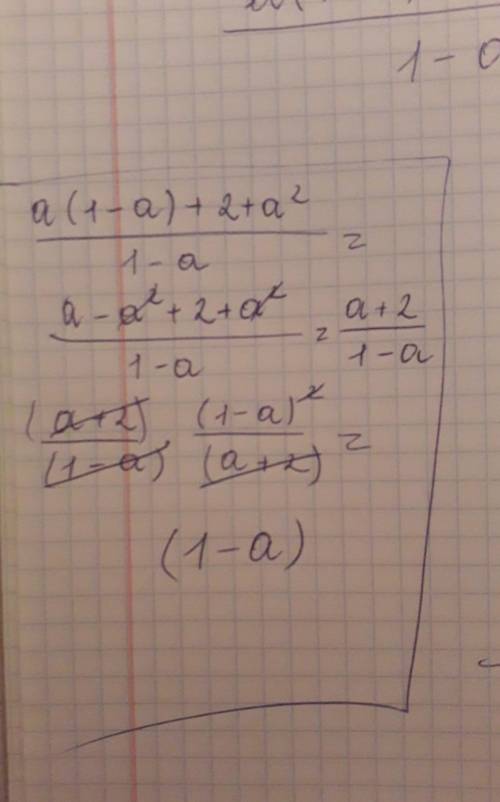 1 -
a (1-a) + 2 + a² / 1-a =
a - a² + 2 + a² / 1-a = a+2 / 1-a
(a+2) / (1-a) (1-a)² / (a+2) =
(1-a)